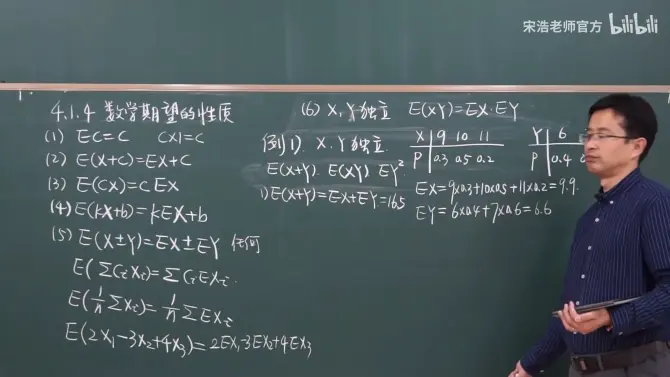 宋浩老师官方 bilibili
4.1.4 数学期望的性质
(1) EC=C C×1=C
(2) E(X+C)=EX+C
(3) E(CX)=CEX
(4) E(kX+b)=kEX+b
(5) E(X±Y)=EX±EY 任何
E(∑CiXi)=∑CiEXi
E(1/n ∑Xi)=1/n ∑EXi
E(2X₁-3X₂+4X₃)=2EX₁-3EX₂+4EX₃
(6) X,Y独立 E(XY)=EX·EY
例1). X.Y独立.
X 9 10 11
P 0.3 0.5 0.2
Y 6
P 0.4
E(X+Y). E(XY). EY²
1) E(X+Y)=EX+EY=16.5
EX=9×0.3+10×0.5+11×0.2=9.9.
EY=6×0.4+7×0.6=6.6